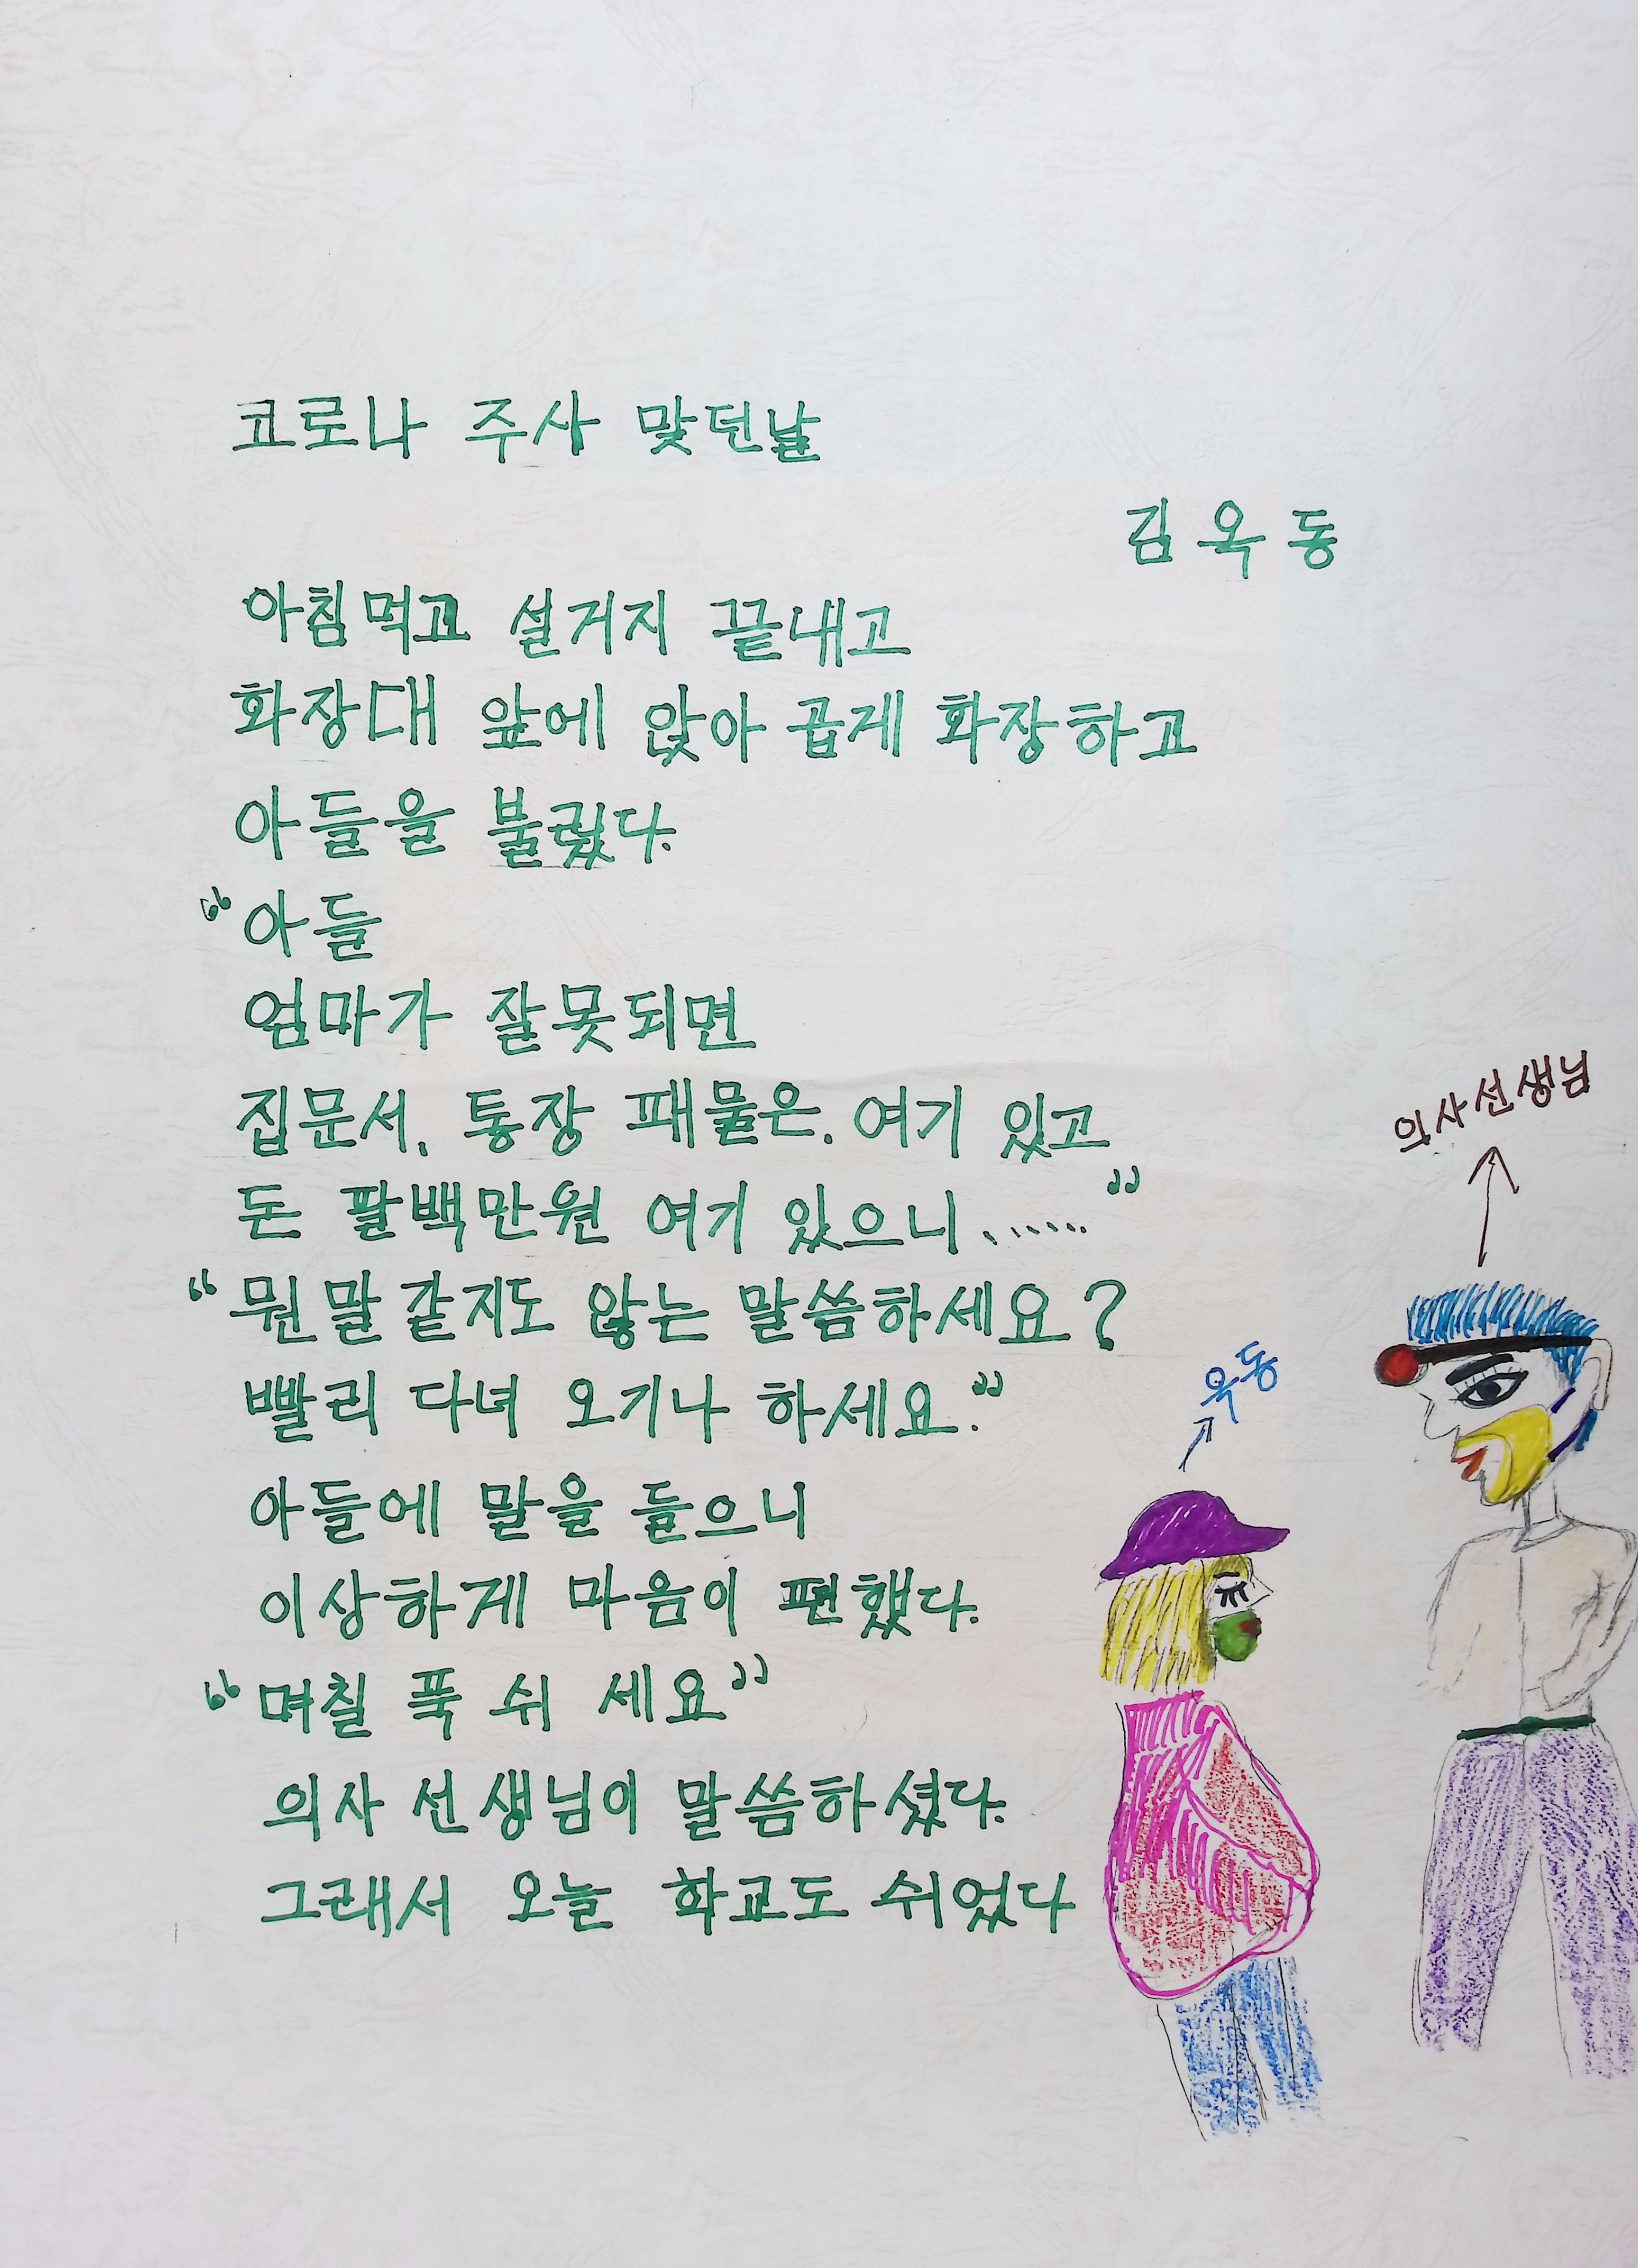 코로나 주사 맞던날
김옥동
아침먹고 설거지 끝내고
화장대 앞에 앉아 곱게 화장하고
아들을 불렀다.
“아들
엄마가 잘못되면
집문서, 통장 패물은, 여기 있고
돈 팔백만원 여기 있으니.......”
“뭔 말 같지도 않는 말씀하세요?
빨리 다녀 오기나 하세요.”
아들에 말을 들으니
이상하게 마음이 편했다.
“며칠 푹 쉬 세요”
의사 선생님이 말씀하셨다.
그래서 오늘 학교도 쉬었다
의사선생님
옥동